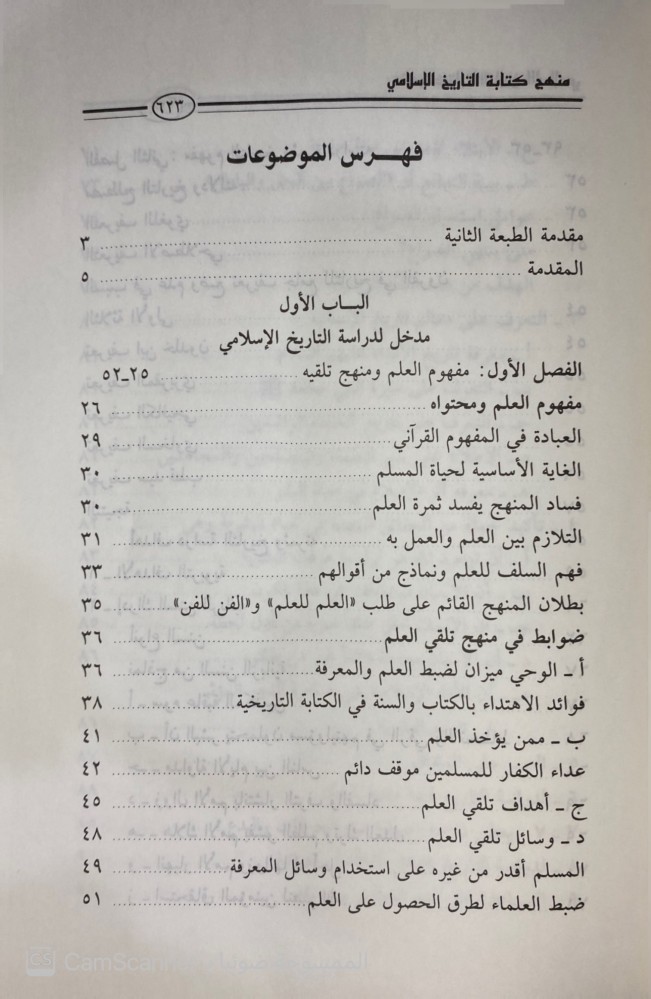 منهج كتابة التاريخ الإسلامي
٦٢٣
فهـرس الموضوعات
مقدمة الطبعة الثانية ٣
المقدمة ٥
البـاب الأول
مدخل لدراسة التاريخ الإسلامي
الفصل الأول: مفهوم العلم ومنهج تلقيه ٢٥ـ٥٢
مفهوم العلم ومحتواه ٢٦
العبادة في المفهوم القرآني ٢٩
الغاية الأساسية لحياة المسلم ٣٠
فساد المنهج يفسد ثمرة العلم ٣٠
التلازم بين العلم والعمل به ٣١
فهم السلف للعلم ونماذج من أقوالهم ٣٣
بطلان المنهج القائم على طلب «العلم للعلم» و«الفن للفن» ٣٥
ضوابط في منهج تلقي العلم ٣٦
أ ـ الوحي ميزان لضبط العلم والمعرفة ٣٦
فوائد الاهتداء بالكتاب والسنة في الكتابة التاريخية ٣٨
ب ـ ممن يؤخذ العلم ٤١
عداء الكفار للمسلمين موقف دائم ٤٢
ج ـ أهداف تلقي العلم ٤٥
د ـ وسائل تلقي العلم ٤٨
المسلم أقدر من غيره على استخدام وسائل المعرفة ٤٩
ضبط العلماء لطرق الحصول على العلم ٥١
CS CamScanner